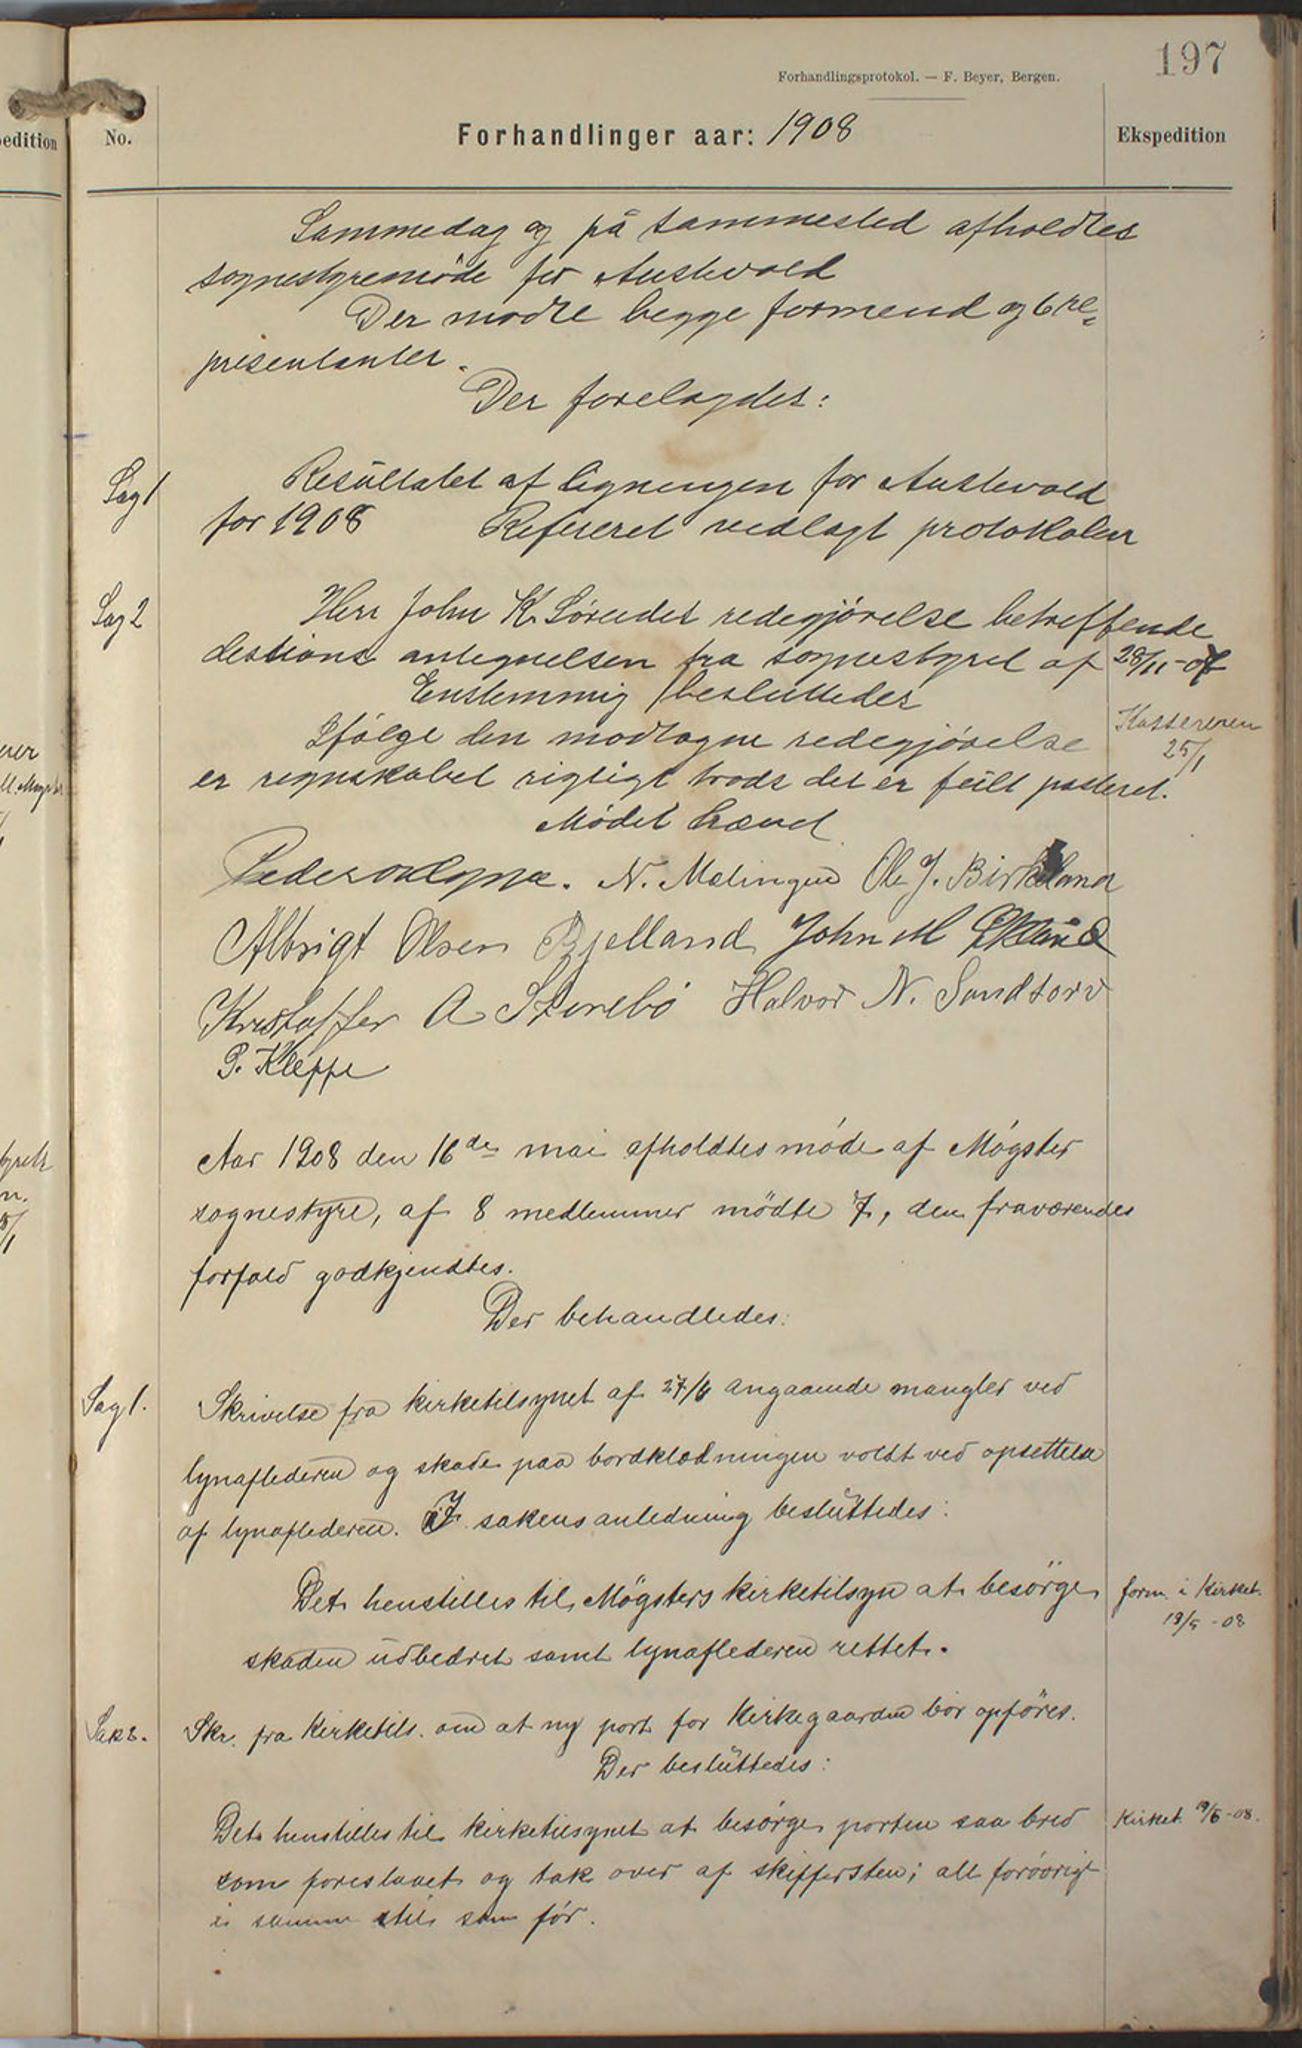 197
Forhandlingsprotokol. — F. Beyer, Bergen.
edition
No.
Forhandlinger aar: 1908
Ekspedition
Sammedag og på sammested afholdtes
sognestyremöde for Austevold
Der mödte begge formend og 6 re=
presentanter.
Der forelagdes:
Sag 1
Resultatet af ligningen for Austevold
for 1908 Refereret vedlagt protokolen
Sag 2
Herr John K. Söreides redegjörelse betreffende
antegnelsen fra sognestyret af 28/11-07
Enstemmig besluttedes
Ifölge den modtagne redegjörelse
Kassereren
25/1
er regnskabet rigtigt trods det er feilt posteret.
Mödet hævet
N. Melingen Ole J. Birkeland
Albrigt Olsen Bjelland John M
Kristoffer A Stenebö Halvor N. Sandtorv
P. Kleppe
Aar 1908 den 16de mai afholdtes möde af Mögster
sognestyre, af 8 medlemmer mödte 7, den fraværendes
forfald godkjendtes.
Der behandledes:
Sag 1.
Skrivelse fra kirketilsynet af 27/4 angaaende mangler ved
lynaflederen og skade paa bordklædningen voldt ved opsettelse
af lynaflederen. I sakens anledning besluttedes:
Det henstilles til Mögsters kirketilsyn at besörge
form. i Kirket.
18/5-08
skaden udbedret samt lynaflederen rettet.
Sak 2.
Skr. fra Kirketils. om at ny port for Kirkegaarden bör opföres.
Der besluttedes:
Det henstilles til kirketilsynet at besörge porten saa bred
Kirket. 18/5-08.
som foreslaaet og tak over af skiffersten; alt forövrigt
i samme stil som för.